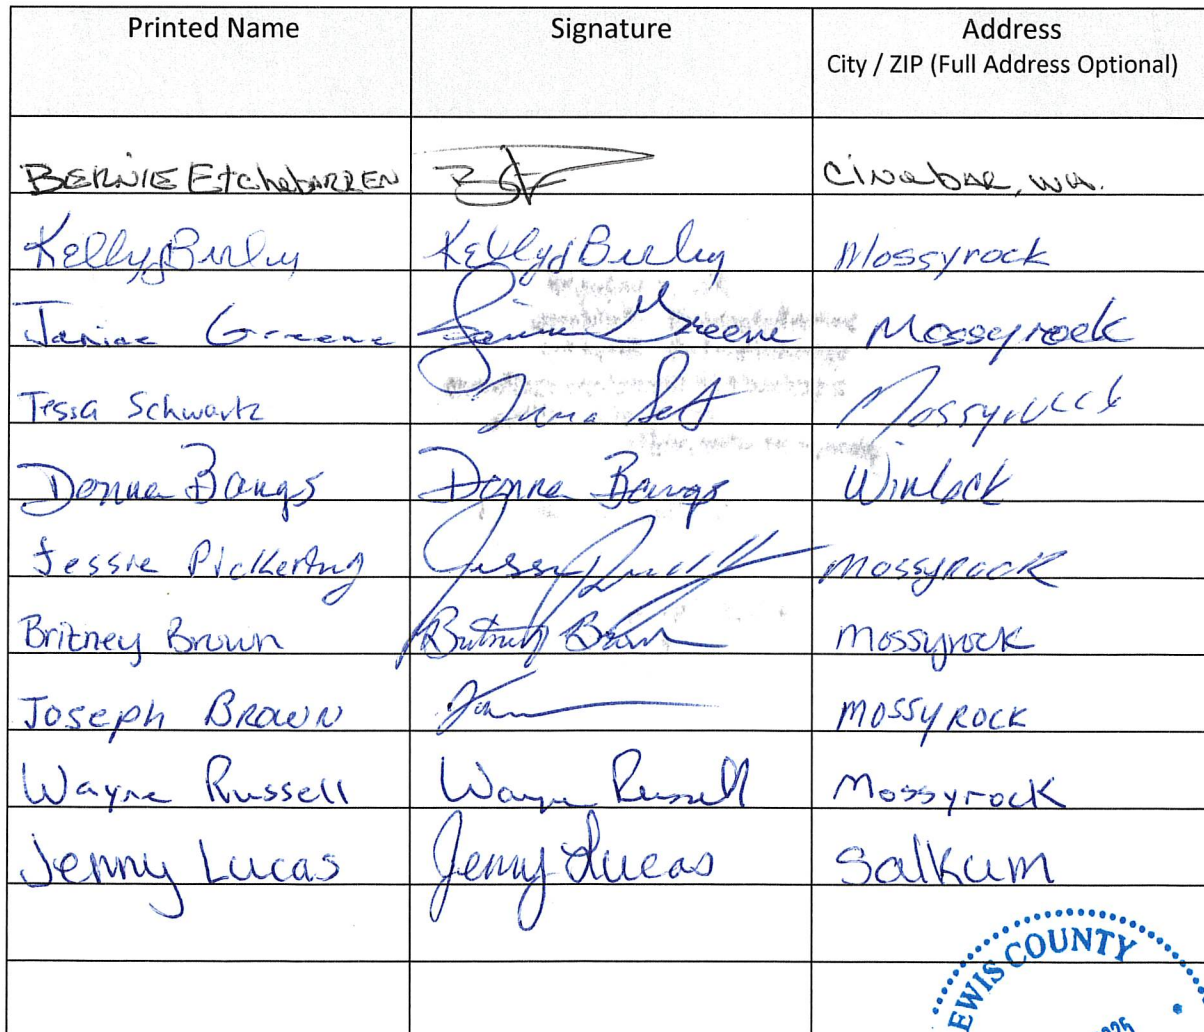 Printed Name Signature Address
City / ZIP (Full Address Optional)
BERNIE EtchebARREN cinabar, wa.
Kelly J Burley Kelly J Burley Mossyrock
Janine Greene Janine Greene Mossyrock
Tessa Schwartz Mossyrock
Donna Bangs Donna Bangs Winlock
Jessie Pickering Mossyrock
Britney Brown Britney Brown Mossyrock
Joseph BROWN MOSSYROCK
Wayne Russell Wayne Russell Mossyrock
Jenny Lucas Jenny Lucas Salkum
EWIS COUNTY